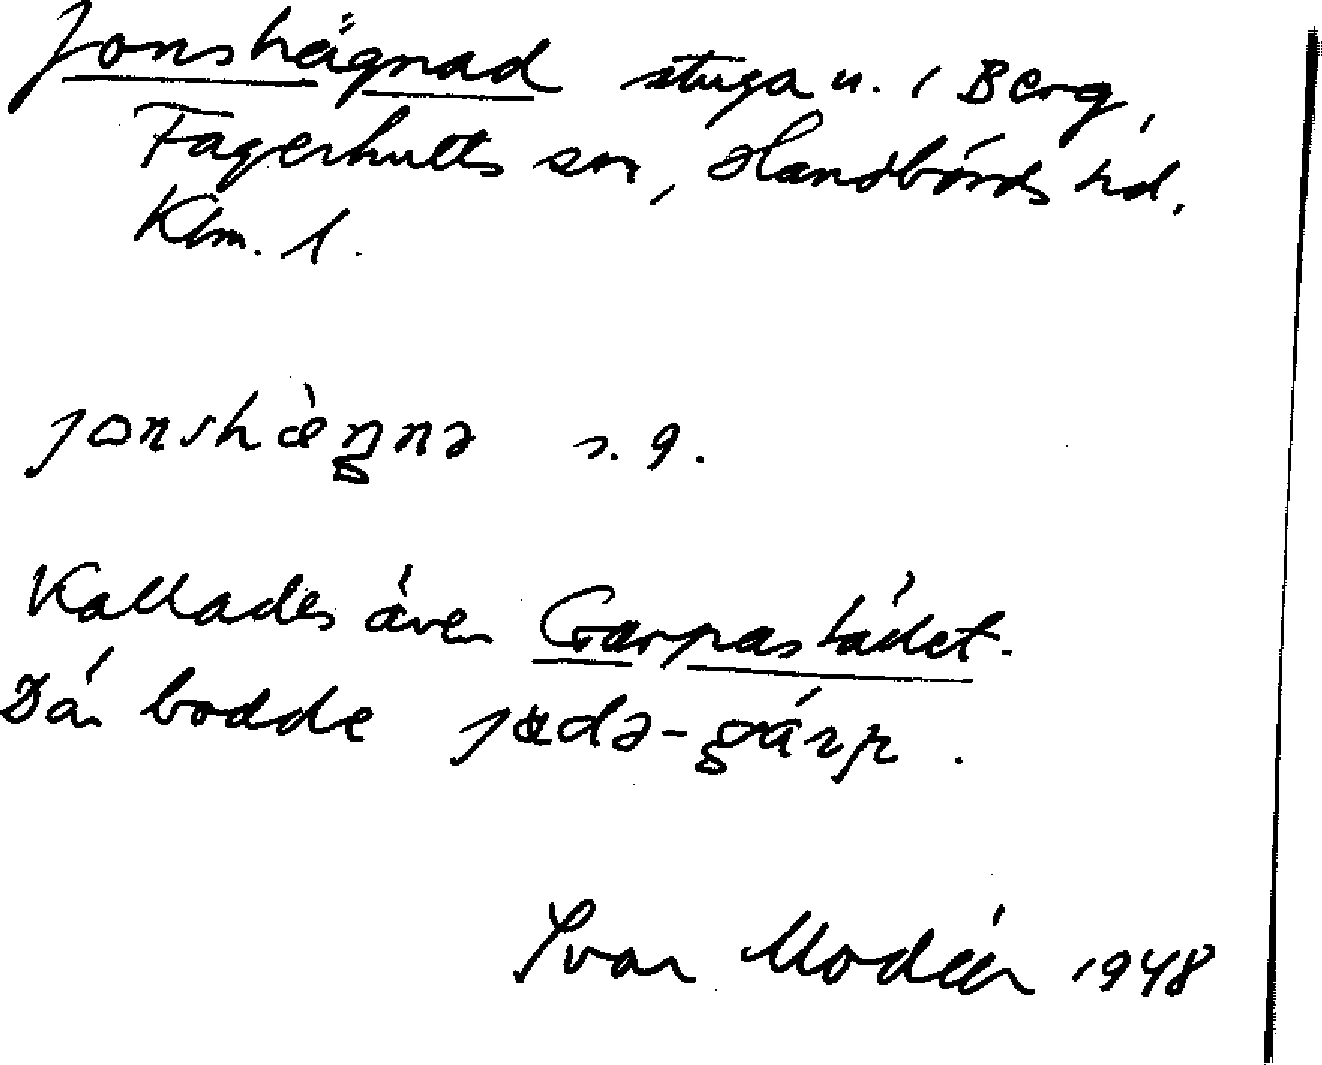 Jonshägnad stuga u. i Berg,
Fagerhults sn, Handbörds hd.
Klm. l.
jonshæ̀ŋnə s. g.
Kallades även Garpastället.
Där bodde -gárp.
Ivar Modéer 1948